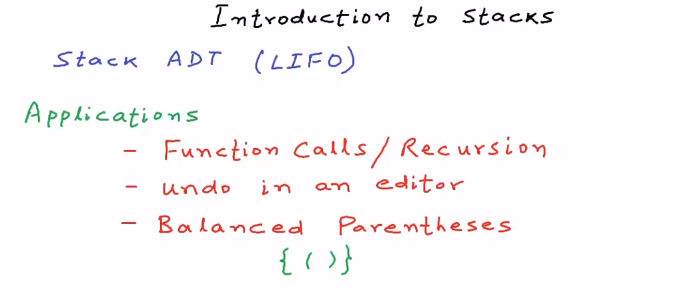 Introduction to stacks
Stack ADT (LIFO)
Applications
- Function Calls/Recursion
- undo in an editor
- Balanced Parentheses
{()}